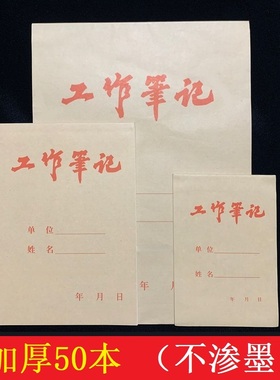 工作筆记
工作筆记
单位
姓名
年 月 日
工作筆记
单位
姓名
年 月 日
加厚50本 （不渗墨